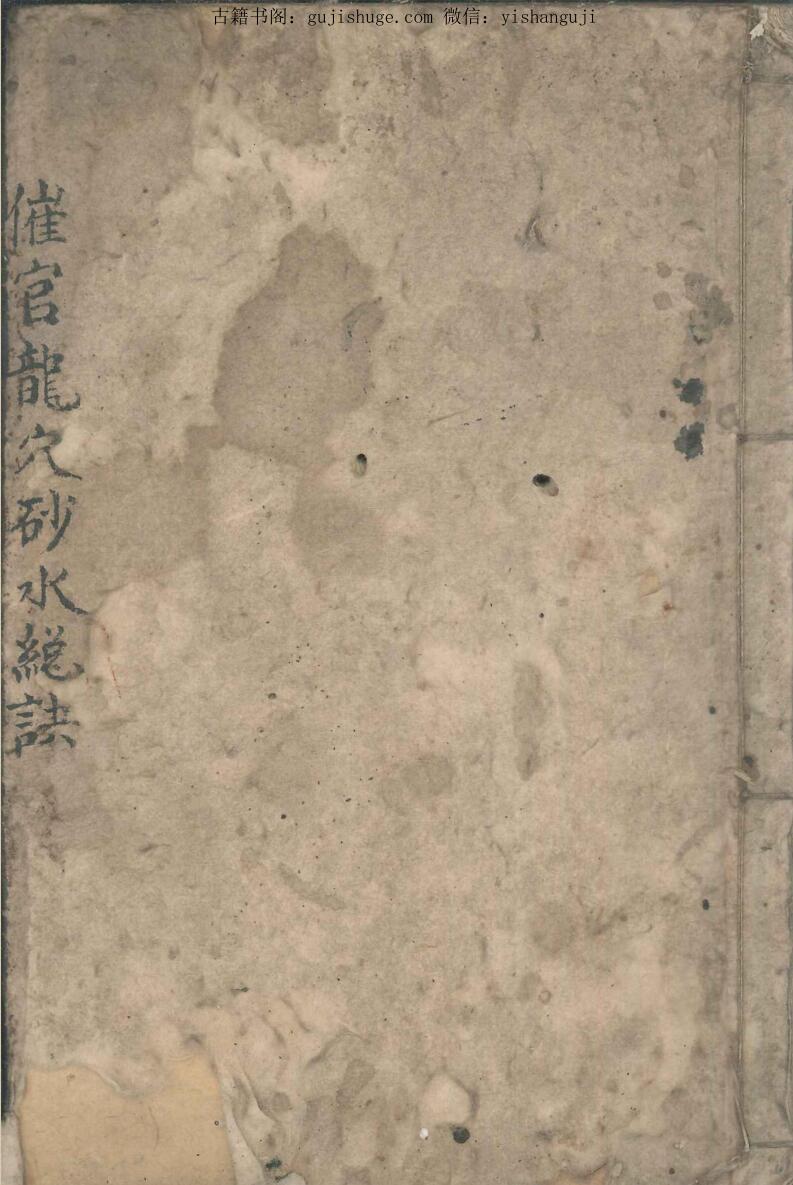 古籍书阁：gujishuge.com 微信：yishanguji
催官龍穴砂水総訣